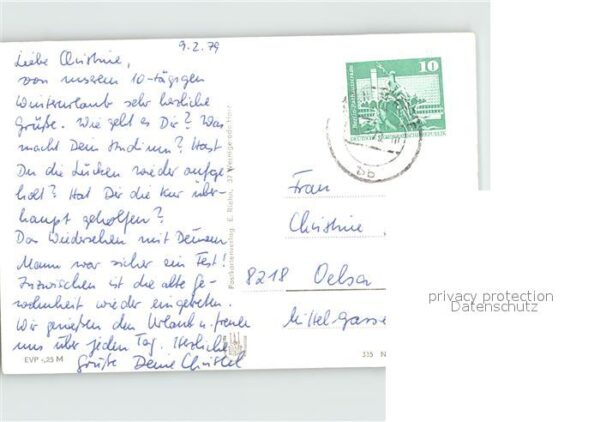 9.2.79
Liebe Christine,
von unserem 10-tägigen
Winterurlaub sehr herzliche
Grüße. Wie geht es Dir? Was
macht Dein Studium? Hast
Du die Lücken wieder aufge-
holt? Hat Dir die Kur über-
haupt geholfen?
Das Wiedersehen mit Deinem
Mann war sicher ein Fest!
Inzwischen ist die alte Ge-
wohnheit wieder eingetreten.
Wir genießen den Urlaub u. freuen
uns über jeden Tag. Herzliche
Grüße Deine Christel
EVP -,25 M
Postkartenverlag E. Riehn, 37 Wernigerode/Harz
10
DEUTSCHE DEMOKRATISCHE REPUBLIK
Frau
Christine
8218 Oelsa
Mittel-Gasse
335 N
privacy protection
Datenschutz